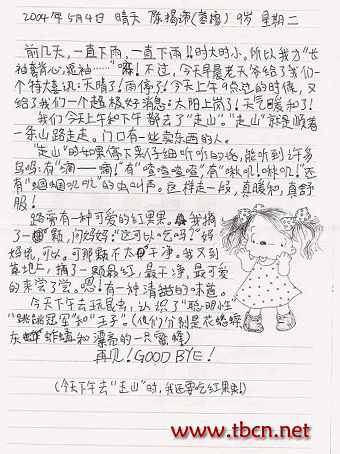 2004年5月4日 晴天 陈 9岁 星期二
前几天，一直下雨，一直下雨!!时大时小。所以我才“长
袖 短袖……”嘛！不过，今天早晨老天爷给了我们一
个特大喜讯：天晴了！雨停了！今天上午9点过的时候，又
给了我们一个超极好消息：太阳上岗了！天气暖和了！
我们今天上午和下午都去了“走山”。“走山”就是顺着
一条山路走走。门口有一些卖东西的人。
“走山”的 如果停下来仔细听听的话，能听到许多
鸟鸣：有“滴——滴！”有“喳喳喳喳”，有“啾叽！啾叽！”还
有“蝈蝈叽叽”的虫叫声。这样走一段，真暖和，真舒
服！
路旁有一种可爱的红果果。我摘
了一颗，问妈妈：“这可以吃吗？”妈
妈说，可以。可那颗不太干净。我又到
草地上，摘了一颗最红，最干净，最可爱
的来尝了尝。嗯！有一种清甜的味道。
今天下午去玩昆虫，认识了“聪明小生”
“跳跳冠军”和“王子”。（他们分别是花蟋蟀
灰 蚱蜢和漂亮的一只蜜蜂）
再见！GOOD BYE！
（今天下午去“走山”时，我还要吃红果果！）
www.tbcn.net